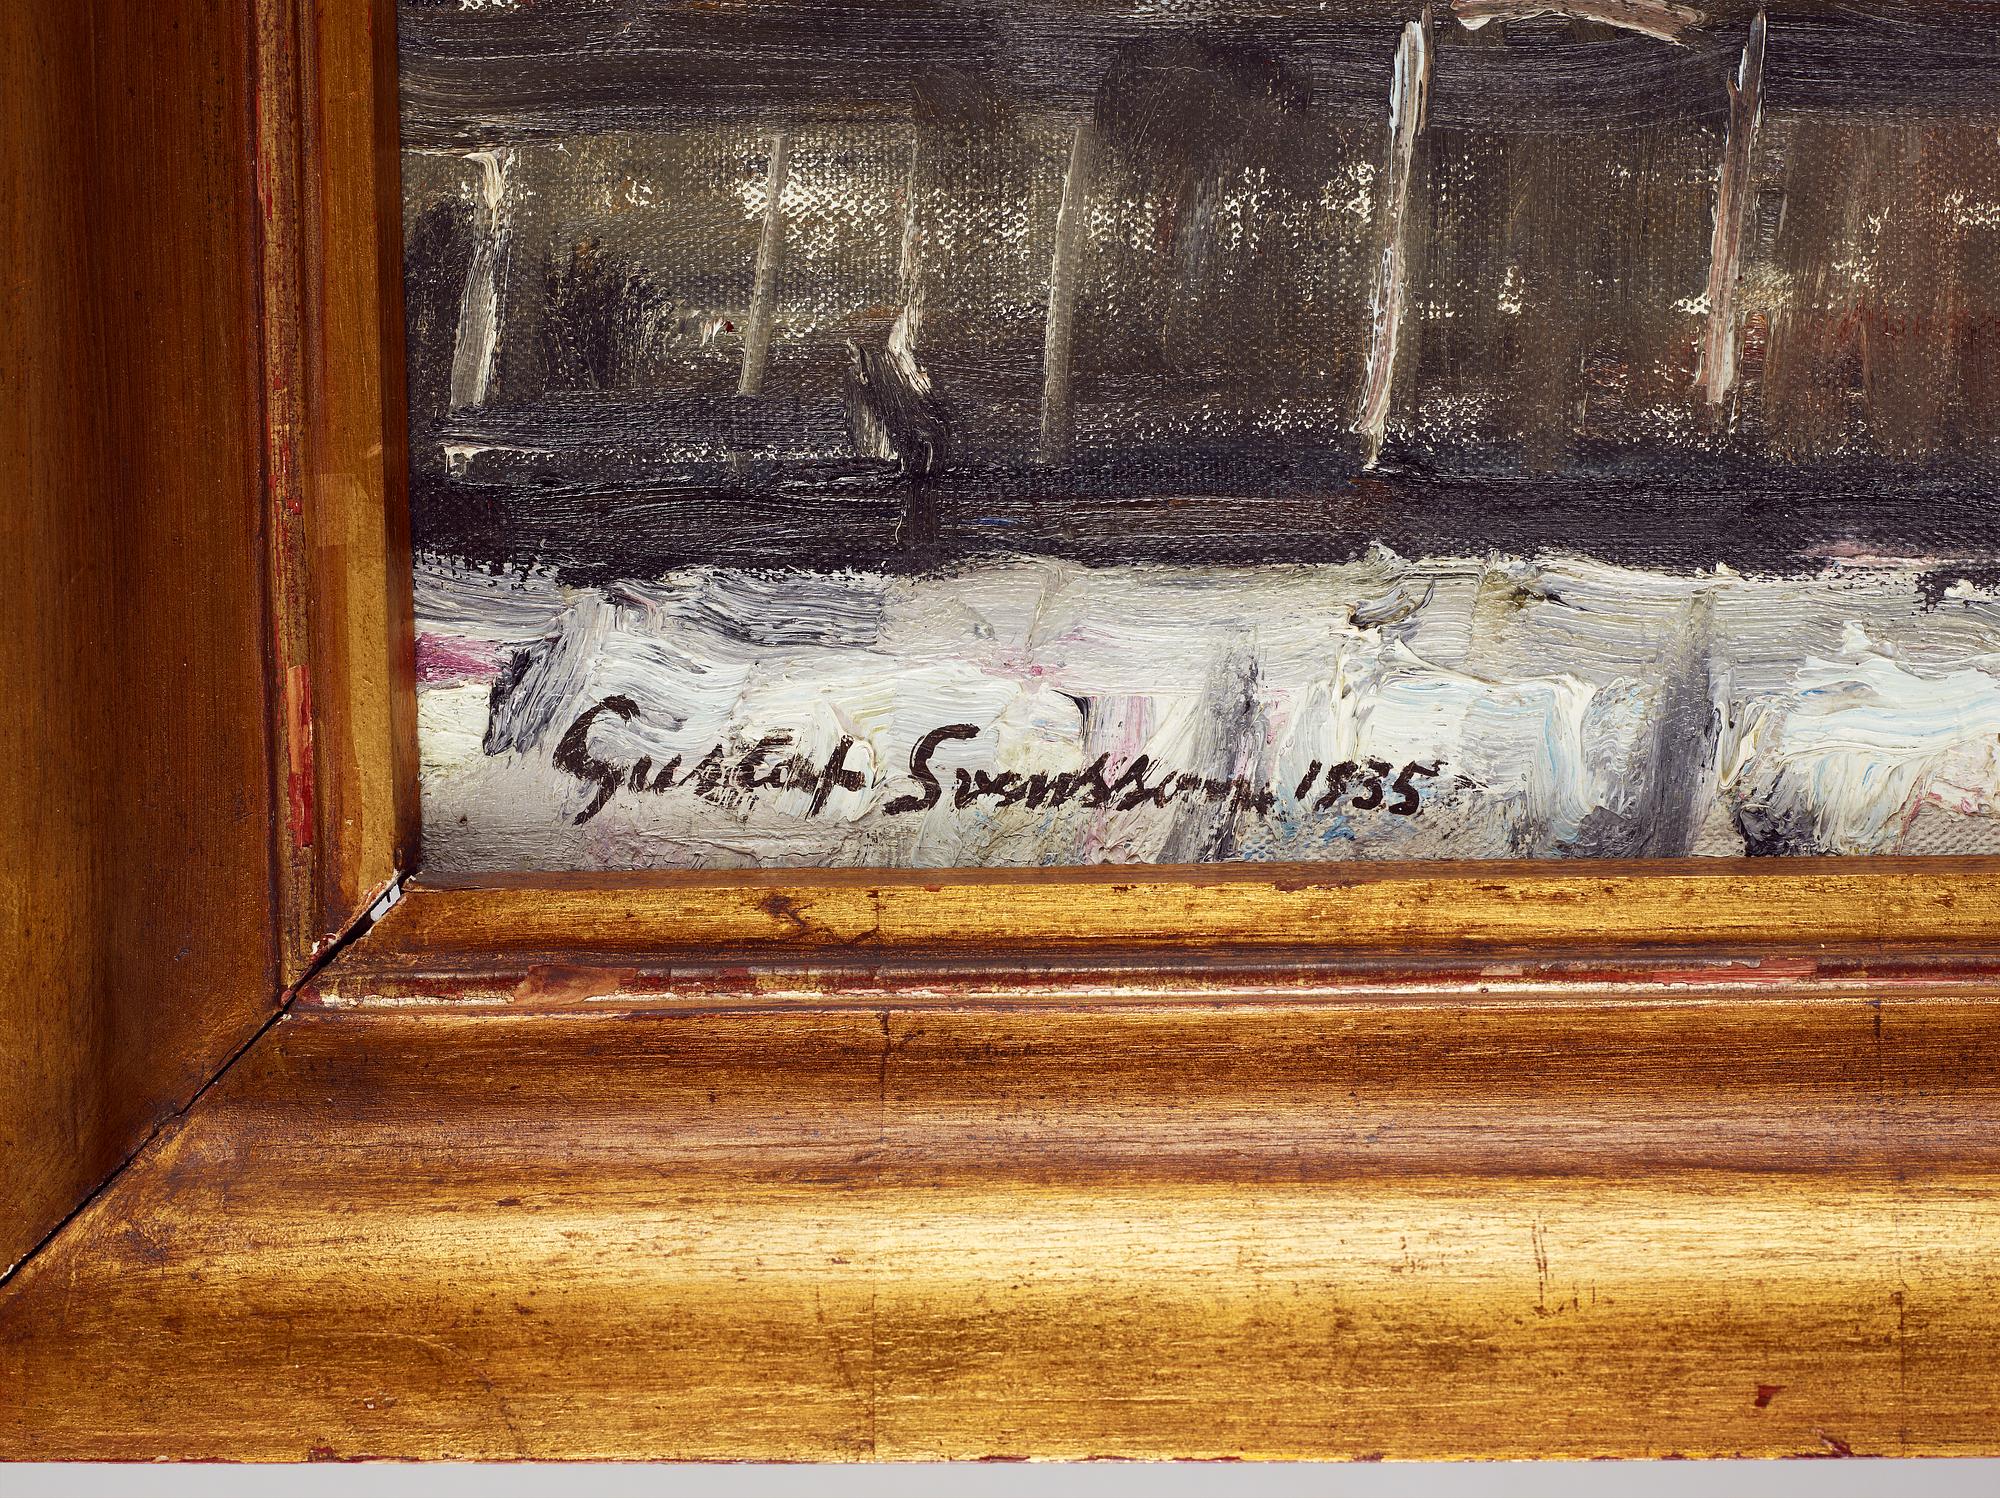 Gustaf Svensson, 1935